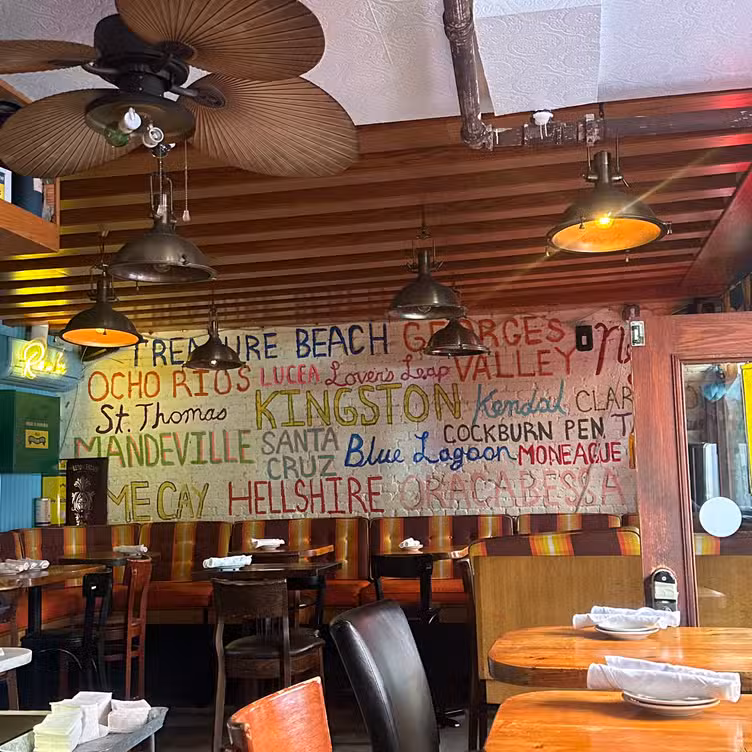 TREASURE BEACH GEORGES
OCHO RIOS LUCEA Lover's Leap VALLEY
St. Thomas KINGSTON Kendal CLAR
MANDEVILLE SANTA CRUZ Blue Lagoon COCKBURN PEN
MONEAGUE
ME CAY HELLSHIRE ORACABESSA